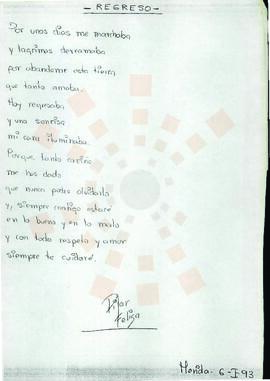 - REGRESO -
Por unos días me marchaba
y lagrimas derramaba
por abandonar esta tierra
que tanto amaba.
Hoy regresaba
y una sonrisa
mi cara iluminaba.
Porque tanto cariño
me has dado
que nunca podre olvidarlo
y, siempre contigo estaré
en lo bueno y en lo malo
y con todo respeto y amor
siempre te cuidaré.
Pilar
Felisa
Merida - 6-I-93